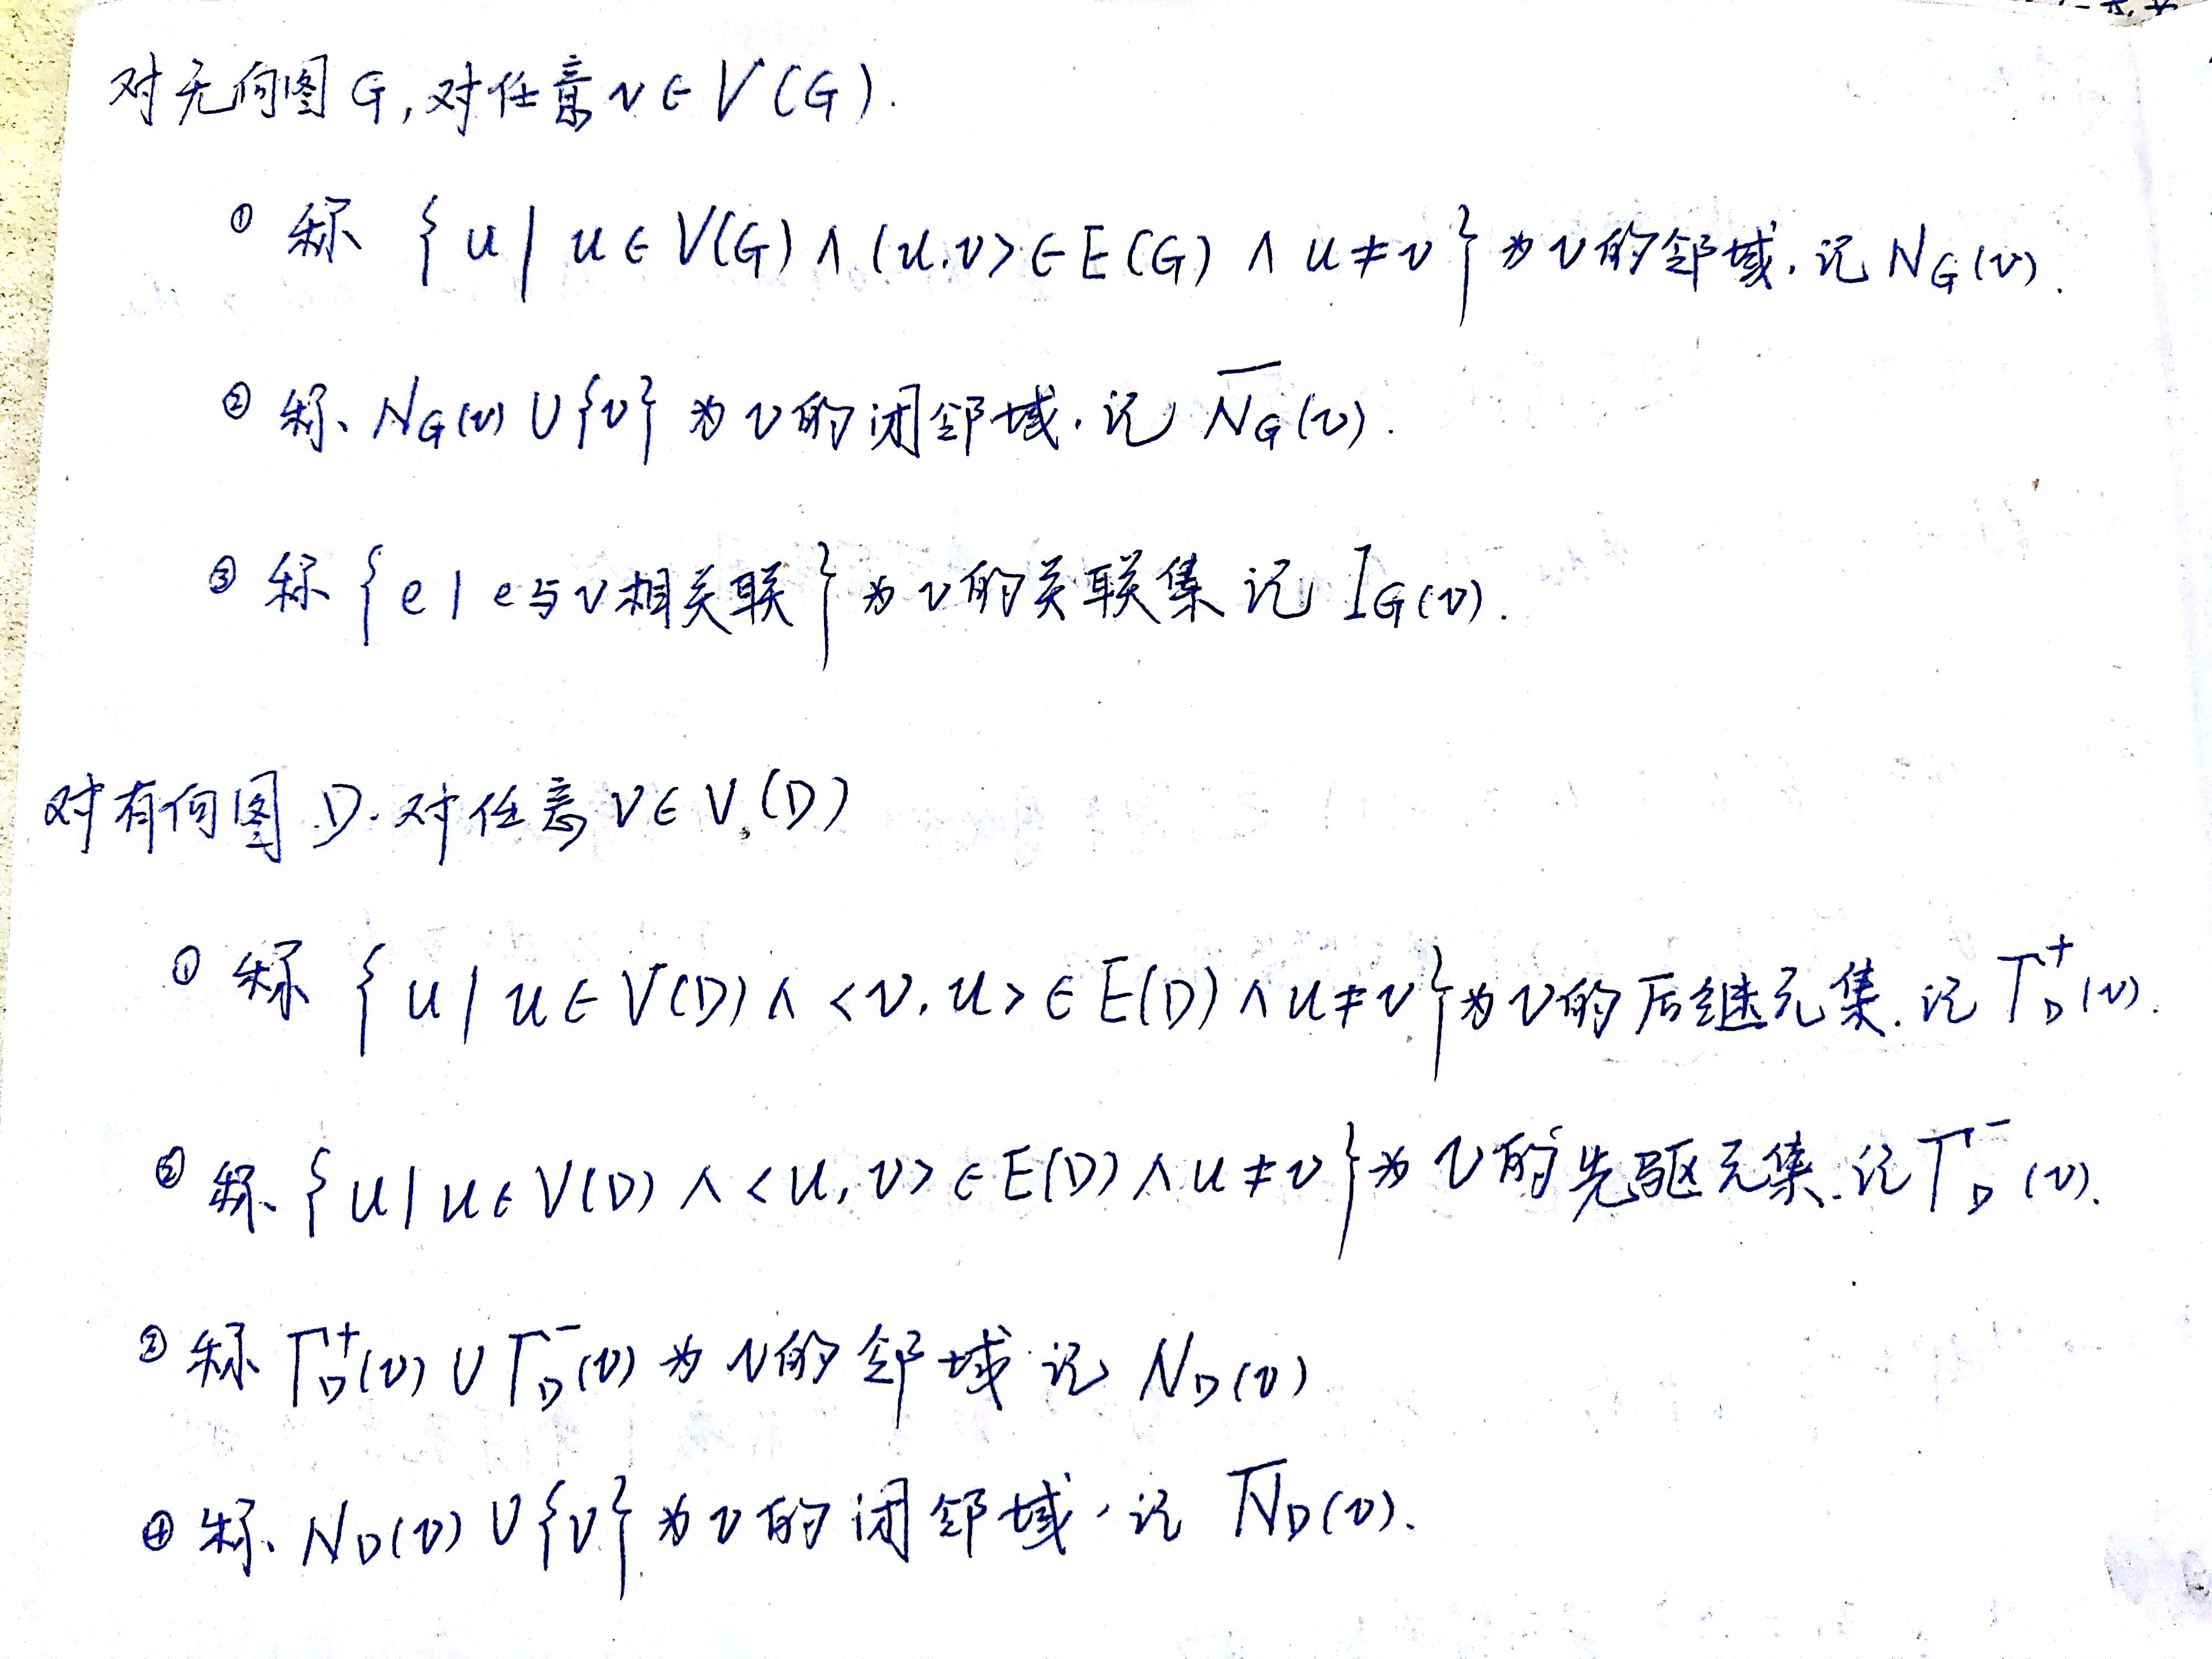 对无向图 G, 对任意 v∈V(G).
① 称 {u | u∈V(G)∧(u,v>∈E(G)∧u≠v} 为v的邻域, 记 N_G(v).
② 称 N_G(v)∪{v} 为v的闭邻域, 记 \overline{N_G}(v).
③ 称 {e | e与v相关联} 为v的关联集 记 I_G(v).
对有向图 D. 对任意 v∈V(D)
① 称 {u | u∈V(D)∧<v,u>∈E(D)∧u≠v} 为v的后继元集. 记 Γ_D^+(v).
② 称 {u | u∈V(D)∧<u,v>∈E(D)∧u≠v} 为v的先驱元集. 记 Γ_D^-(v).
③ 称 Γ_D^+(v)∪Γ_D^-(v) 为v的邻域 记 N_D(v)
④ 称 N_D(v)∪{v} 为v的闭邻域, 记 \overline{N}_D(v).